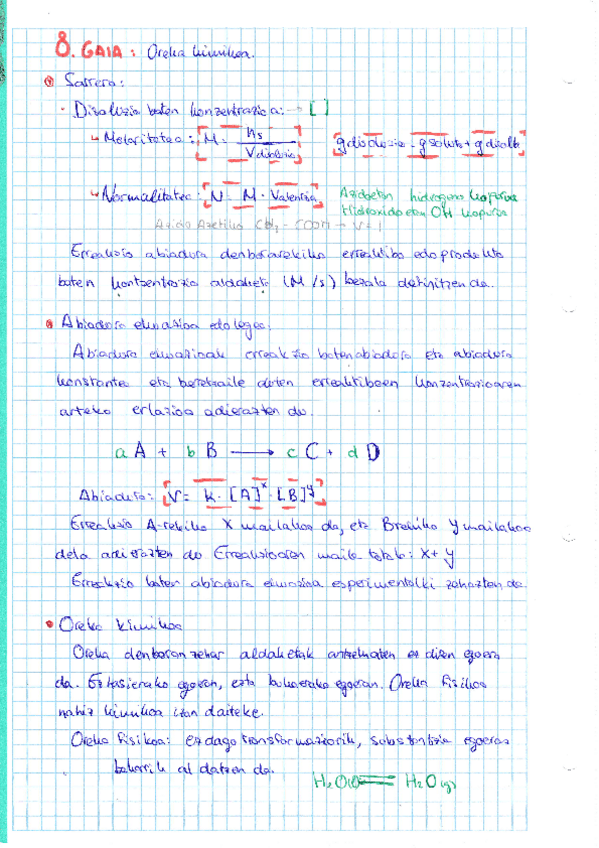 8. GAIA: Oreka kimikoa.
Sarrera:
- Disoluzio baten kontzentrazioa: → [ ]
↳ Molaritatea: M = ns / V disoluzio g disoluzio = g soluto + g disolb
↳ Normalitatea: N = M · Valentzia Azidoetan hidrogeno kopurua
Hidroxidoetan OH kopurua
Azido Azetiko CH3 - COOH → V=1
Erreakzio abiadura denborarekiko erreaktibo edo produktu
baten kontzentrazio aldaketa (M/s) bezala definitzen da.
Abiadura ekuazioa edo legea:
Abiadura ekuazioak erreakzio baten abiadura eta abiadura
konstante eta beretzaile doten erreaktiboen konzentrazioaren
arteko erlazioa adierazten du.
a A + b B → c C + d D
Abiadura: V = k · [A]^x · [B]^y
Erreakzio A-rekiko X mailakoa da, eta B-rekiko Y mailakoa
dela adierazten du Erreakzioaren maila totala: X + Y
Erreakzio baten abiadura ekuazioa esperimentalki zehazten da.
Oreka kimikoa
Oreka denboran zehar aldaketak antzematen ez diren egoera
da. Ez hasierako egoeran, ezta bukaerako egoeran. Oreka fisikoa
nahiz kimikoa izan daiteke.
Oreka fisikoa: ez dago transformaziorik, substantzia egoeraz
bakarrik aldatzen da.
H2O(l) ⇌ H2O(g)